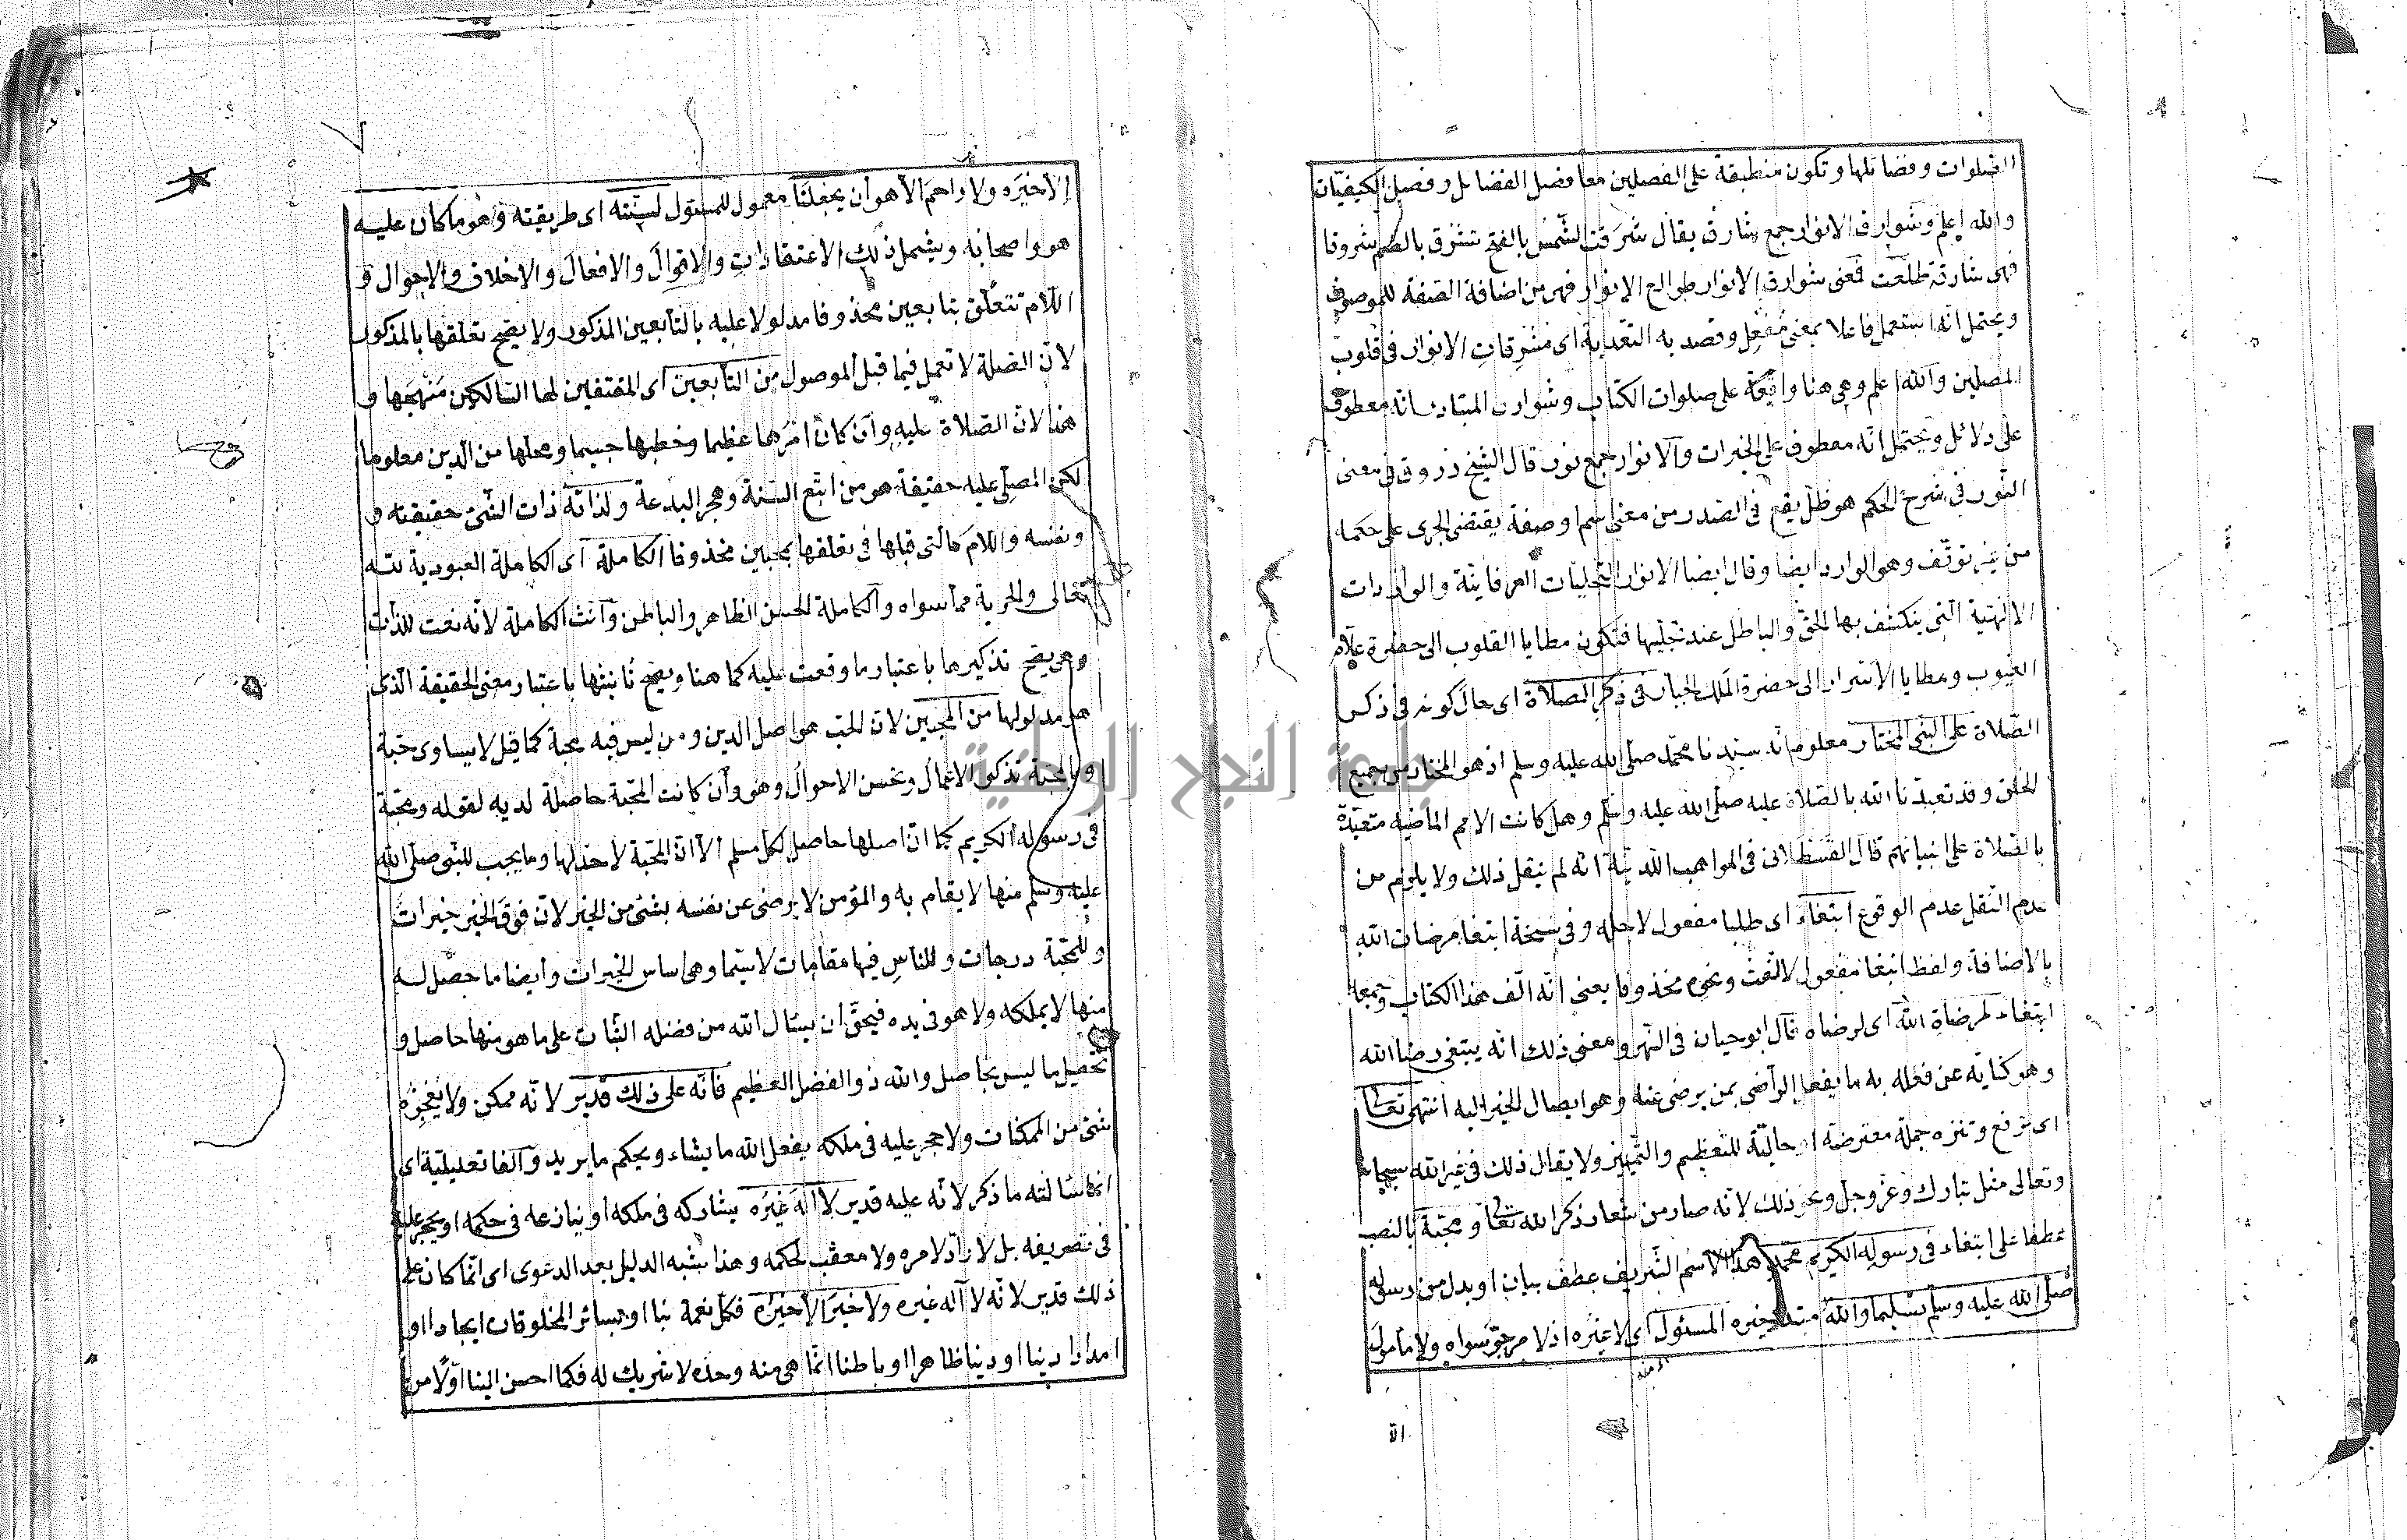 الصلوات وفضائلها وتكون منطبقة على الفصلين معا فصل الفضايل وفصل الكيفيات
والله اعلم وشوارق الانوار جمع شارق يقال شرقت الشمس بالفتح تشرق بالضم شروقا
فهى شارقة طلعت فمعنى شوارق الانوار طوالع الانوار فهو من اضافة الصفة للموصوف
ويحتمل انه استعمل فاعلا بمعنى مُفْعِل وقصد به التعدية اى مشرقات الانوار فى قلوب
المصلين والله اعلم وهى هنا واقعة على صلوات الكتاب وشوارق المتبادر انه معطوف
على دلائل ويحتمل انه معطوف على الخيرات والانوار جمع نور قال الشيخ زروق فى معنى
النور فى شرح الحكم هو ظل يقع فى الصدر من معنى اسم او صفة يقتضى الجرى على حكمه
من غير توقف وهو الوارد ايضا وقال ايضا الانوار التجليات العرفانية والواردات
الالهية التى ينكشف بها الحق والباطل عند تجليها فتكون مطايا القلوب الى حضرة علام
الغيوب ومطايا الاسرار الى حضرة الملك الجبار فى ذكر الصلاة اى حال كونه فى ذكر
الصلاة على النبى المختار معلوم انه سيدنا محمد صلى الله عليه وسلم اذ هو المختار من جميع
الخلق وقد تعبدنا الله بالصلاة عليه صلى الله عليه وسلم وهل كانت الامم الماضيه متعبدة
بالصلاة على انبيائهم قال القسطلانى فى المواهب اللدنية انه لم ينقل ذلك ولا يلزم من
عدم النقل عدم الوقوع ابتغاء اى طلبا مفعول لاجله وفى نسخة ابتغاء مرضات الله
بالاضافة ولفظ ابتغا مفعول لالفت ونحوه محذوفا يعنى انه الف هذا الكتاب وجمعه
ابتغاء لمرضاة الله اى لرضاه قال ابو حيان فى النهر ومعنى ذلك انه يبتغى رضا الله
وهو كناية عن فعله به ما يفعل الراضى بمن يرضى عنه وهو ايصال الخير اليه انتهى تعالى
اى ترفع وتنزه جملة معترضة او حالية للتعظيم والتمييز ولا يقال ذلك فى غير الله سبحانه
وتعالى مثل تبارك وعز وجل ونحو ذلك لانه صار من شعار ذكر الله تعالى ومحبة بالنصب
عطفا على ابتغاء فى رسوله الكريم محمد هذا الاسم الشريف عطف بيان او بدل من رسوله
صلى الله عليه وسلم تسليما والله مبتدا خبره المسئول اى لا غيره اذ لا مرجو سواه ولا مامول
الا
الاخيره ولا راحم الا هو أن يجعلنا معمول للمسئول لسنته اى طريقته وهو ما كان عليه
هو واصحابه ويشمل ذلك الاعتقادات والاقوال والافعال والاخلاق والاحوال و
اللام تتعلق بتابعين محذوفا مدلولا عليه بالتابعين المذكور ولا يصح تعلقها بالمذكور
لان الصلة لا تعمل فيما قبل الموصول من التابعين اى المقتفين لها السالكين منهجها و
هذا لان الصلاة عليه وان كان امرها عظيما وخطبها جسيما ومحلها من الدين معلوما
لكن المصلى عليه حقيقة هو من اتبع السنة وهجر البدعة ولذاته ذات الشئ حقيقته و
ونفسه واللام كالتى قبلها فى تعلقها بمحبين محذوفا الكاملة اى الكاملة العبودية لله
تعالى والحرية مما سواه والكاملة الحسن الظاهر والباطن وأنث الكاملة لانه نعت للذات
وهى يصح تذكيرها باعتبار ما وقعت عليه كما هنا ويصح تانيثها باعتبار معنى الحقيقة الذى
هو مدلولها من المحبين لان الحب هو اصل الدين ومن ليس فيه محبة كما قيل لا يساوى حبة
وبالمحبة تذكو الاعمال وتحسن الاحوال وهو وأن كانت المحبة حاصلة لديه لقوله ومحبة
فى رسوله الكريم كما ان اصلها حاصل لكل مسلم الا ان المحبة لا حد لها وما يجب للنبى صلى الله
عليه وسلم منها لا يقام به والمؤمن لا يرضى عن نفسه بشئ من الخير لان فوق الخير خيرات
وللمحبة درجات وللناس فيها مقامات لاسيما وهى اساس الخيرات وأيضا ما حصل له
منها لا يملكه ولا هو فى يده فيحق ان يسال الله من فضله الثبات على ما هو منها حاصل و
تحصيل ما ليس بحاصل والله ذو الفضل العظيم فانه على ذلك قدير لانه ممكن ولا يعجزه
شئ من الممكنات ولا حجر عليه فى ملكه يفعل الله ما يشاء ويحكم ما يريد والفا تعليلية اى
انما سالته ما ذكر لانه عليه قدير لا اله غيره يشاركه فى ملكه أو ينازعه فى حكمه او يحجر عليه
فى تصريفه بل لا راد لامره ولا معقب لحكمه وهذا يشبه الدليل بعد الدعوى اى انما كان على
ذلك قدير لانه لا اله غيره ولا خير الا خيره فكل نعمة بنا او بسائر المخلوقات ايجادا او
امدادا دينا او دنيا ظاهرا او باطنا انما هى منه وحده لا شريك له فكما احسن الينا اولا من